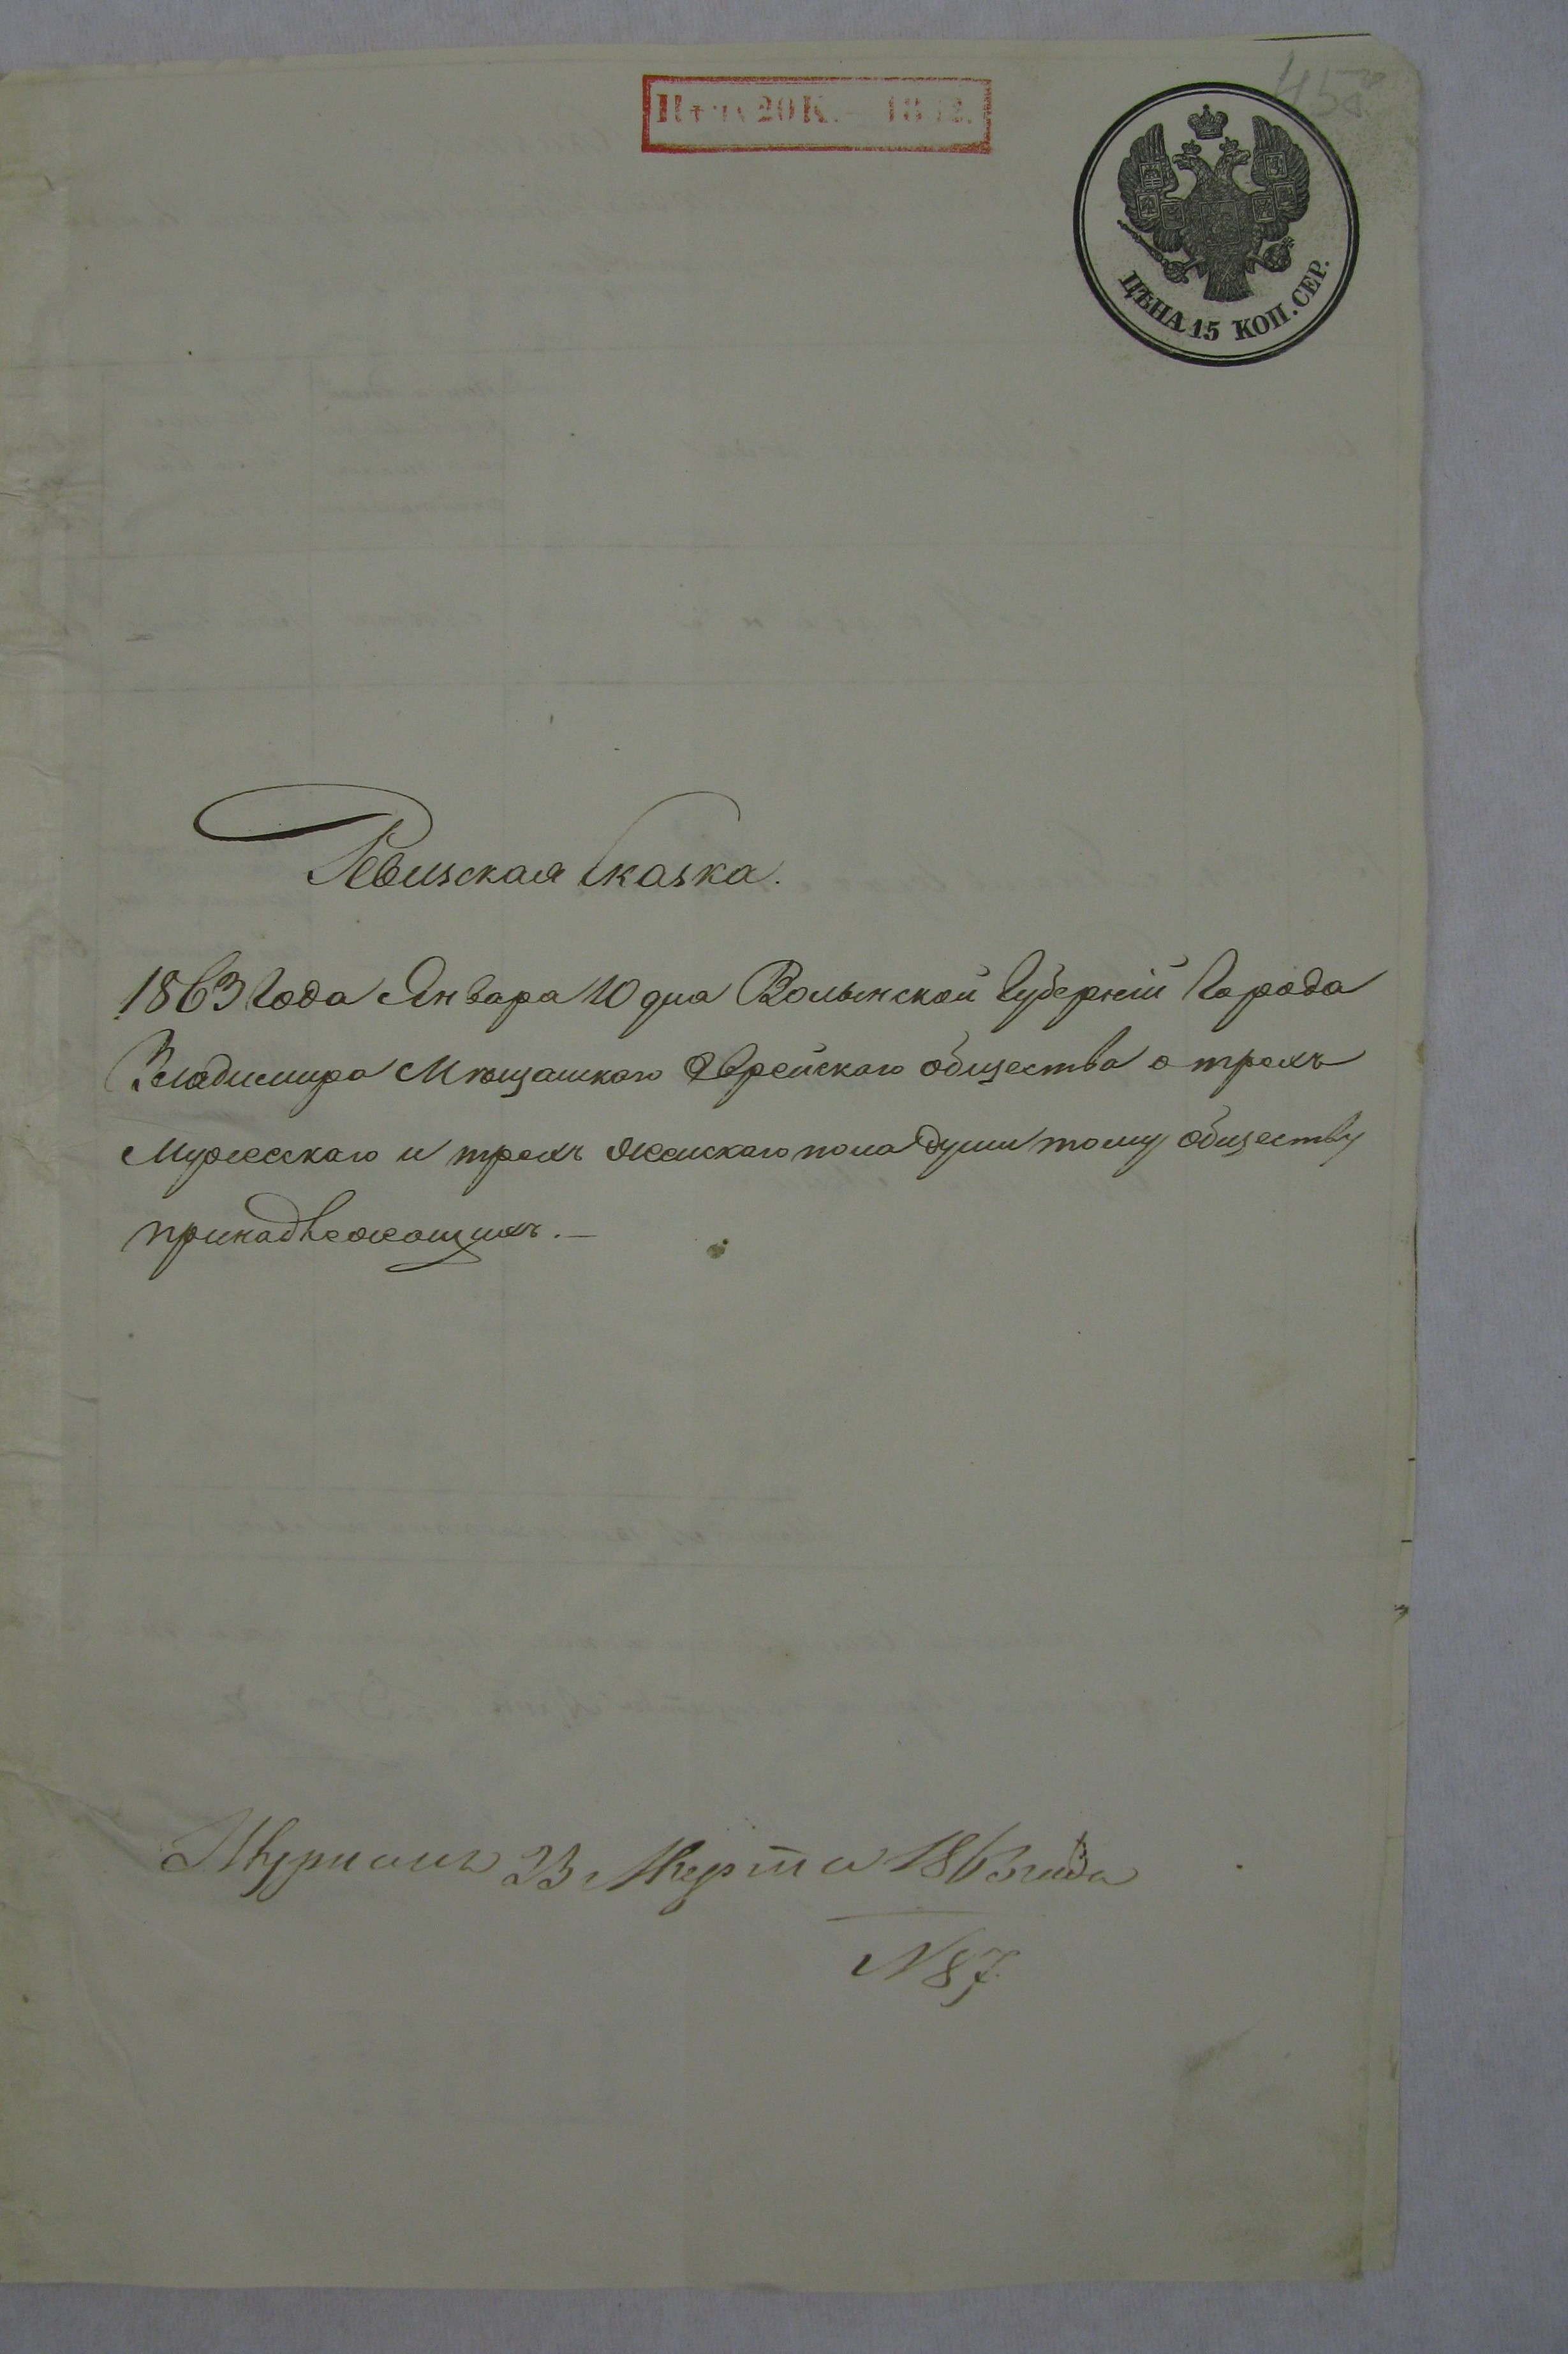 458
Цѣна 20 К. 1862.
ЦѢНА 15 КОП. СЕР.
Ревизская Сказка.
1863 Года Января 10 дня Волынской Губерній Города
Владимира Мѣщанскаго Еврейскаго общества о трехъ
Мужескаго и трехъ женскаго пола души тому обществу
принадлежащихъ. —
23 Марта 1863 года
N 87